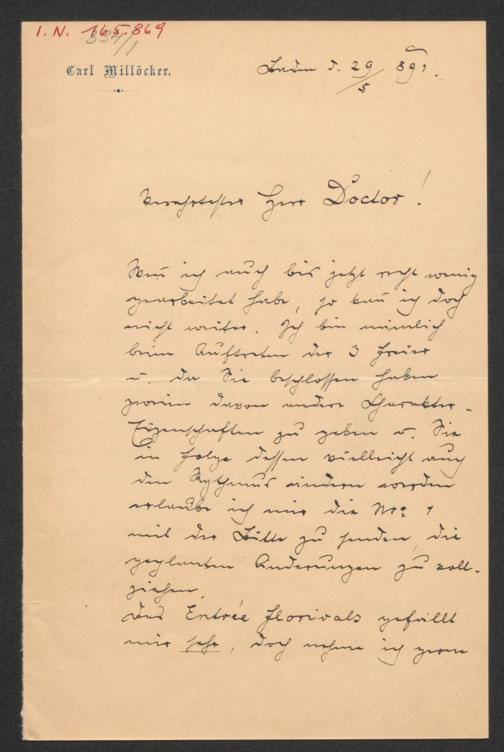 I. N. 165.869
Carl Millöcker.
Baden d. 29/5 891.
Verehrtester Herr Doctor!
Wenn ich auch bis jetzt recht wenig
gearbeitet habe, so kan ich doch
nicht weiter. Ich bin nämlich
beim Auftreten der 3 Freier
u. da Sie beschlossen haben
zweien davon andere Charakter-
Eigenschaften zu geben u. Sie
in Folge dessen vielleicht auch
den Rythmus ändern werden
erlaube ich mir die Nro 1
mit der Bitte zu senden, die
geplanten Änderungen zu voll-
ziehen.
Das Entrée Florivals gefällt
mir sehr, doch nehme ich gerne